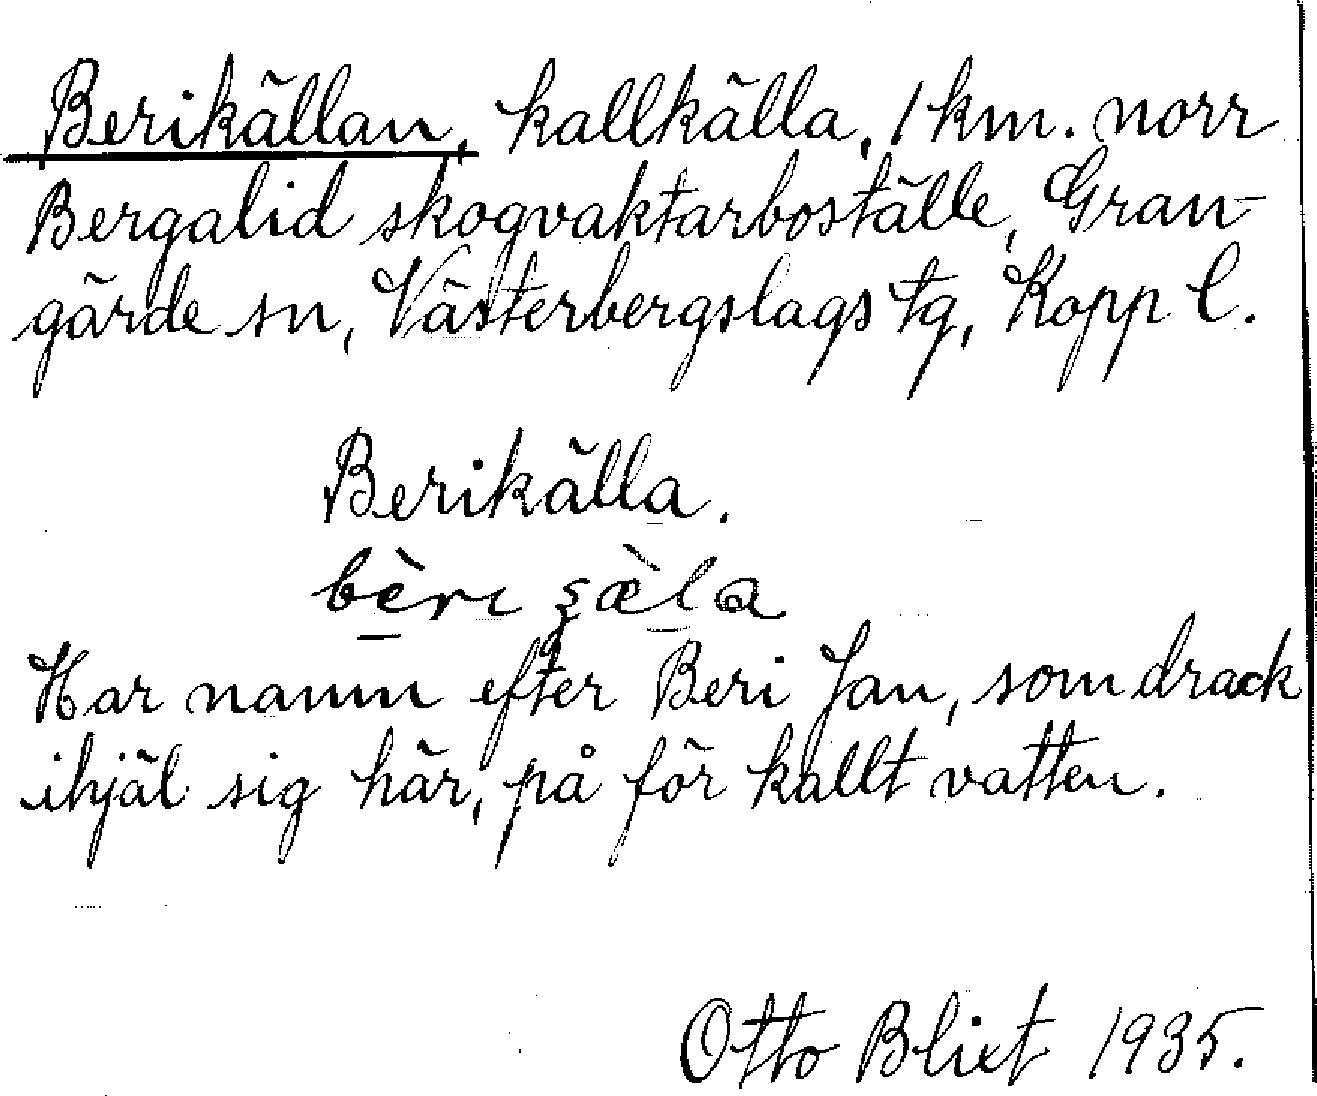 Berikällan, kallkälla, 1 km. norr
Bergalid skogvaktarboställe, Gran-
gärde sn, Västerbergslags tg, Kopp l.
Berikälla.
bèri ʂæ̀la
Har namn efter Beri Jan, som drack
ihjäl sig här, på för kallt vatten.
Otto Blixt 1935.